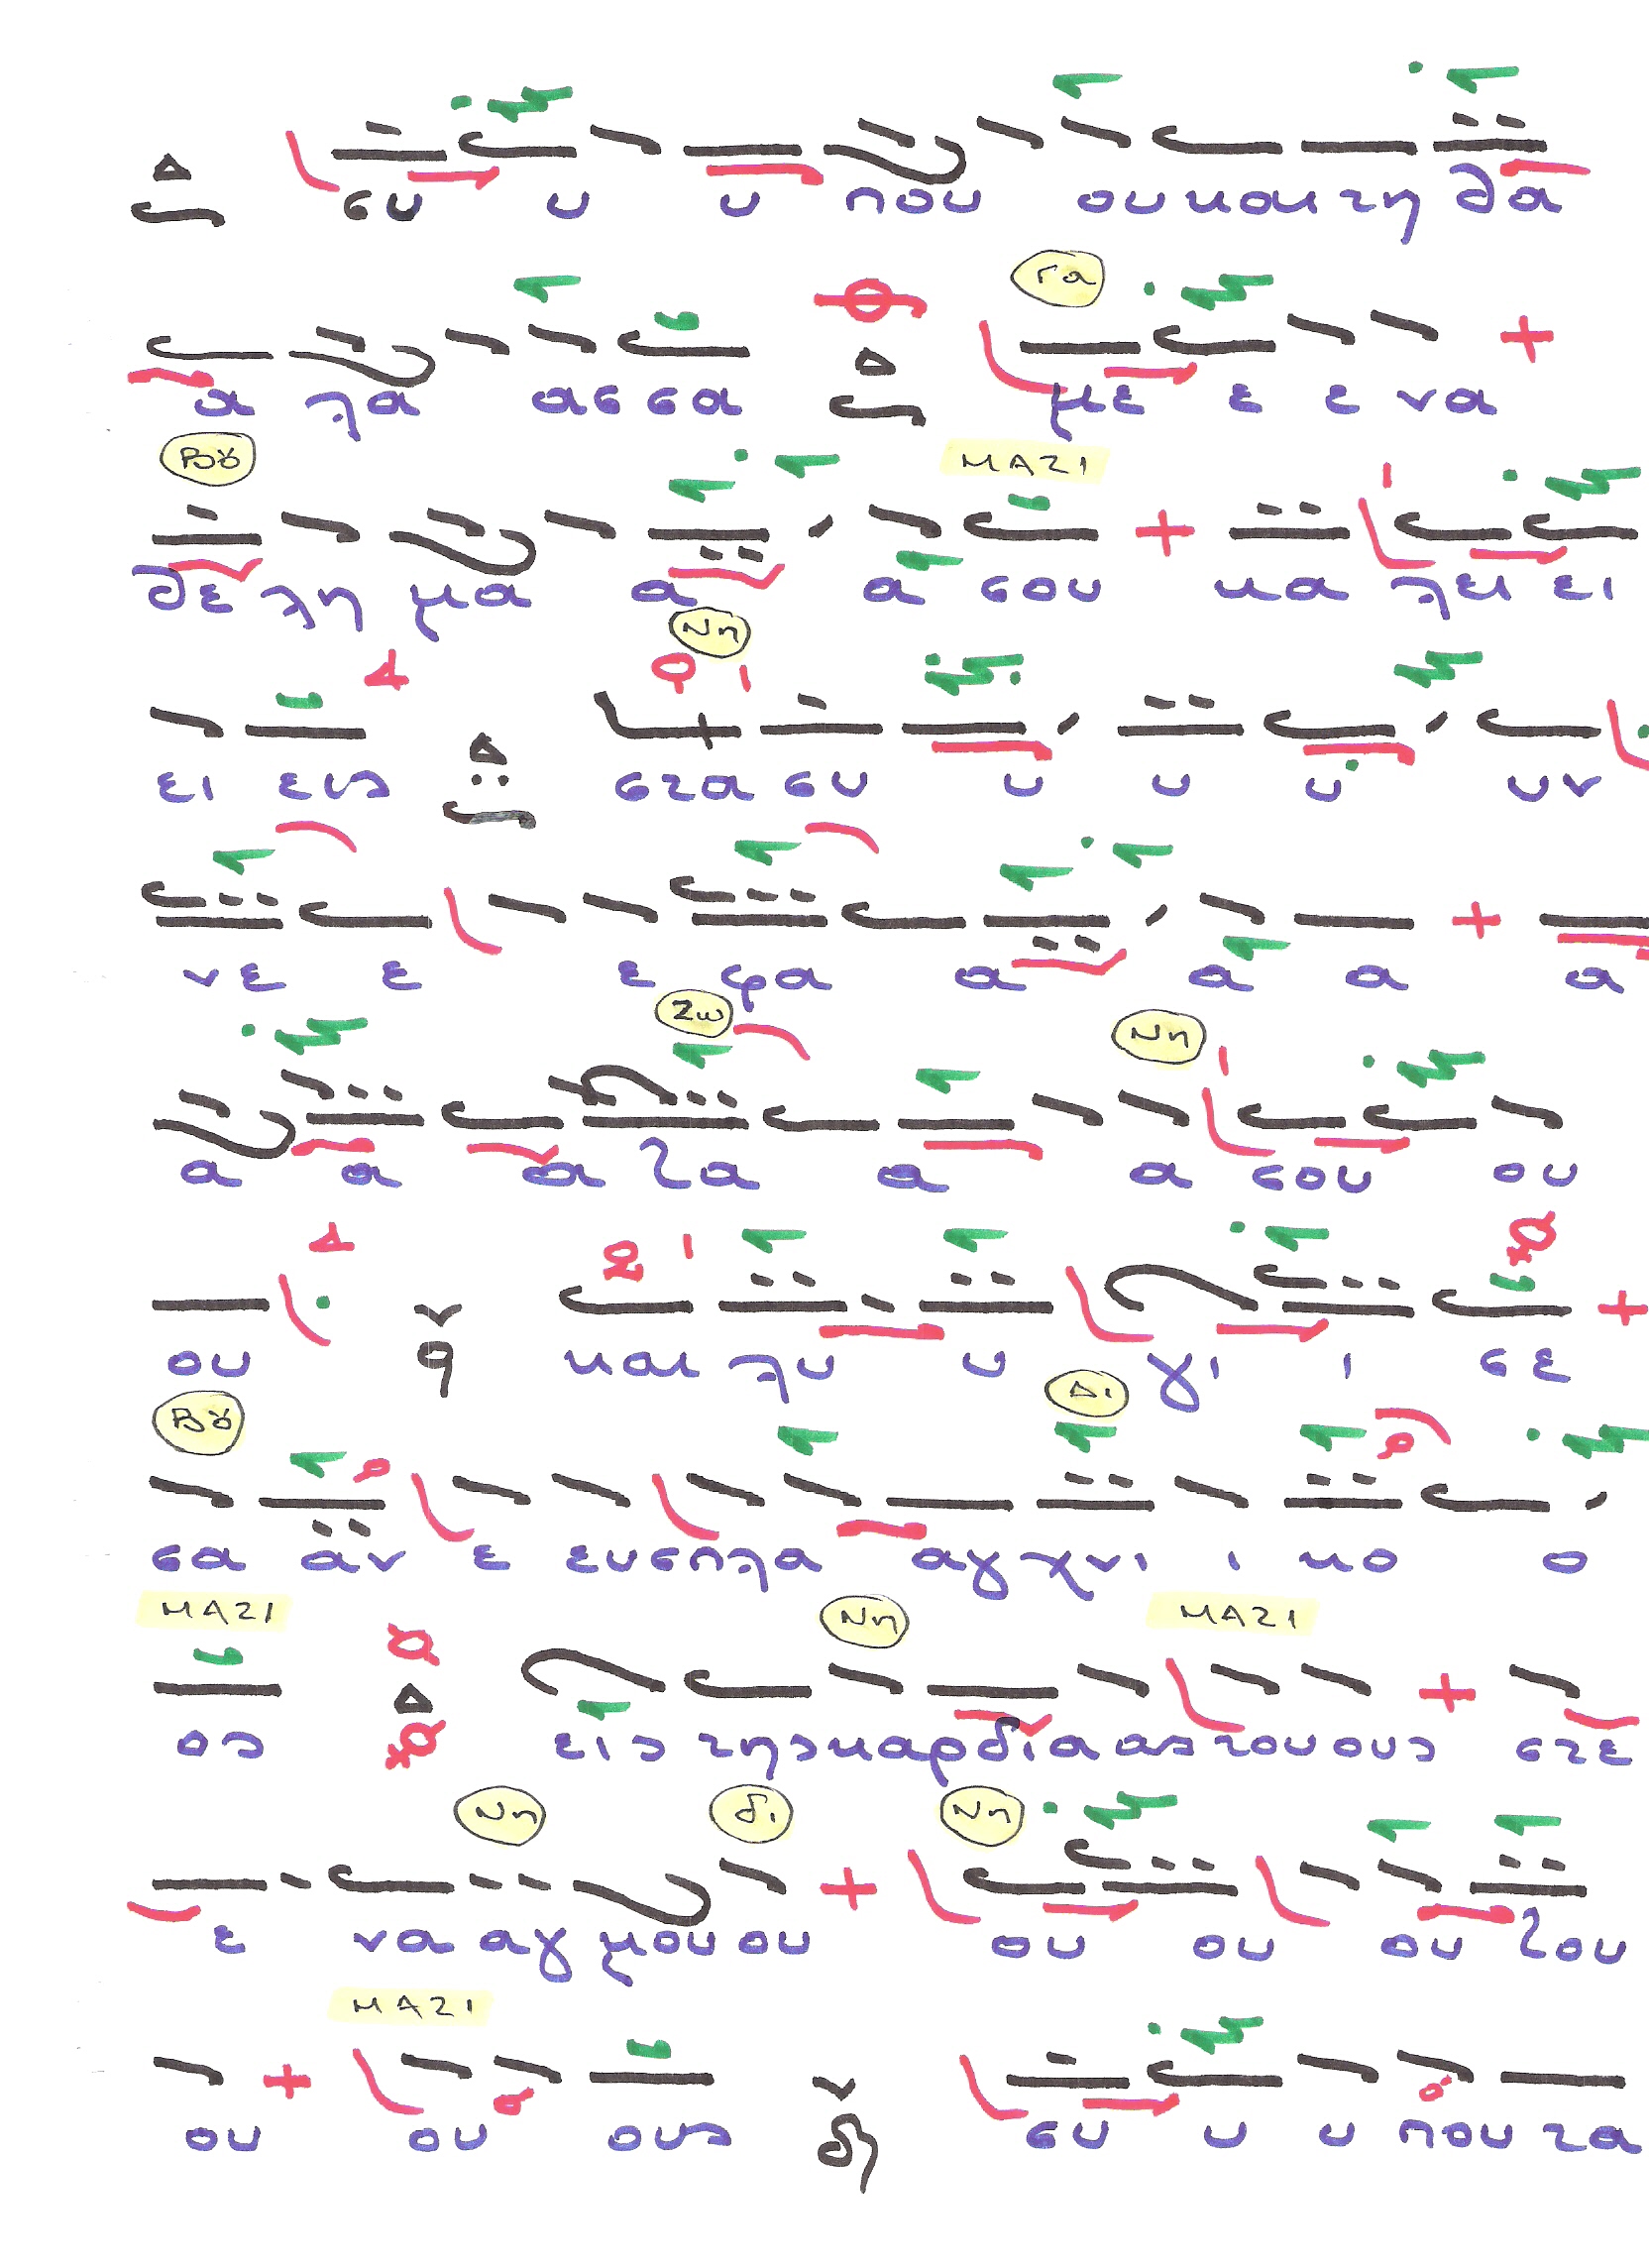 συ υ υ που ου και τη θα
α λα ασ σα
Γα
με ε ε να
Βου
ΜΑΖΙ
θε λη μα α α σου κα λει ει
Νη
ει εις στα συ υ υ υ υν
νε ε ε φα α α α α
Ζω Νη
α α α τα α α σου ου
ου και λυ υ γι ι σε
Βου Δι
σα αν ε ευσπλα αγ χνι ι κο ο
ΜΑΖΙ Νη ΜΑΖΙ
ος εις της καρδιαας του ους στε
Νη δι Νη
ε να αγ μου ου ου ου ου του
ΜΑΖΙ
ου ου ους συ υ υ που τα